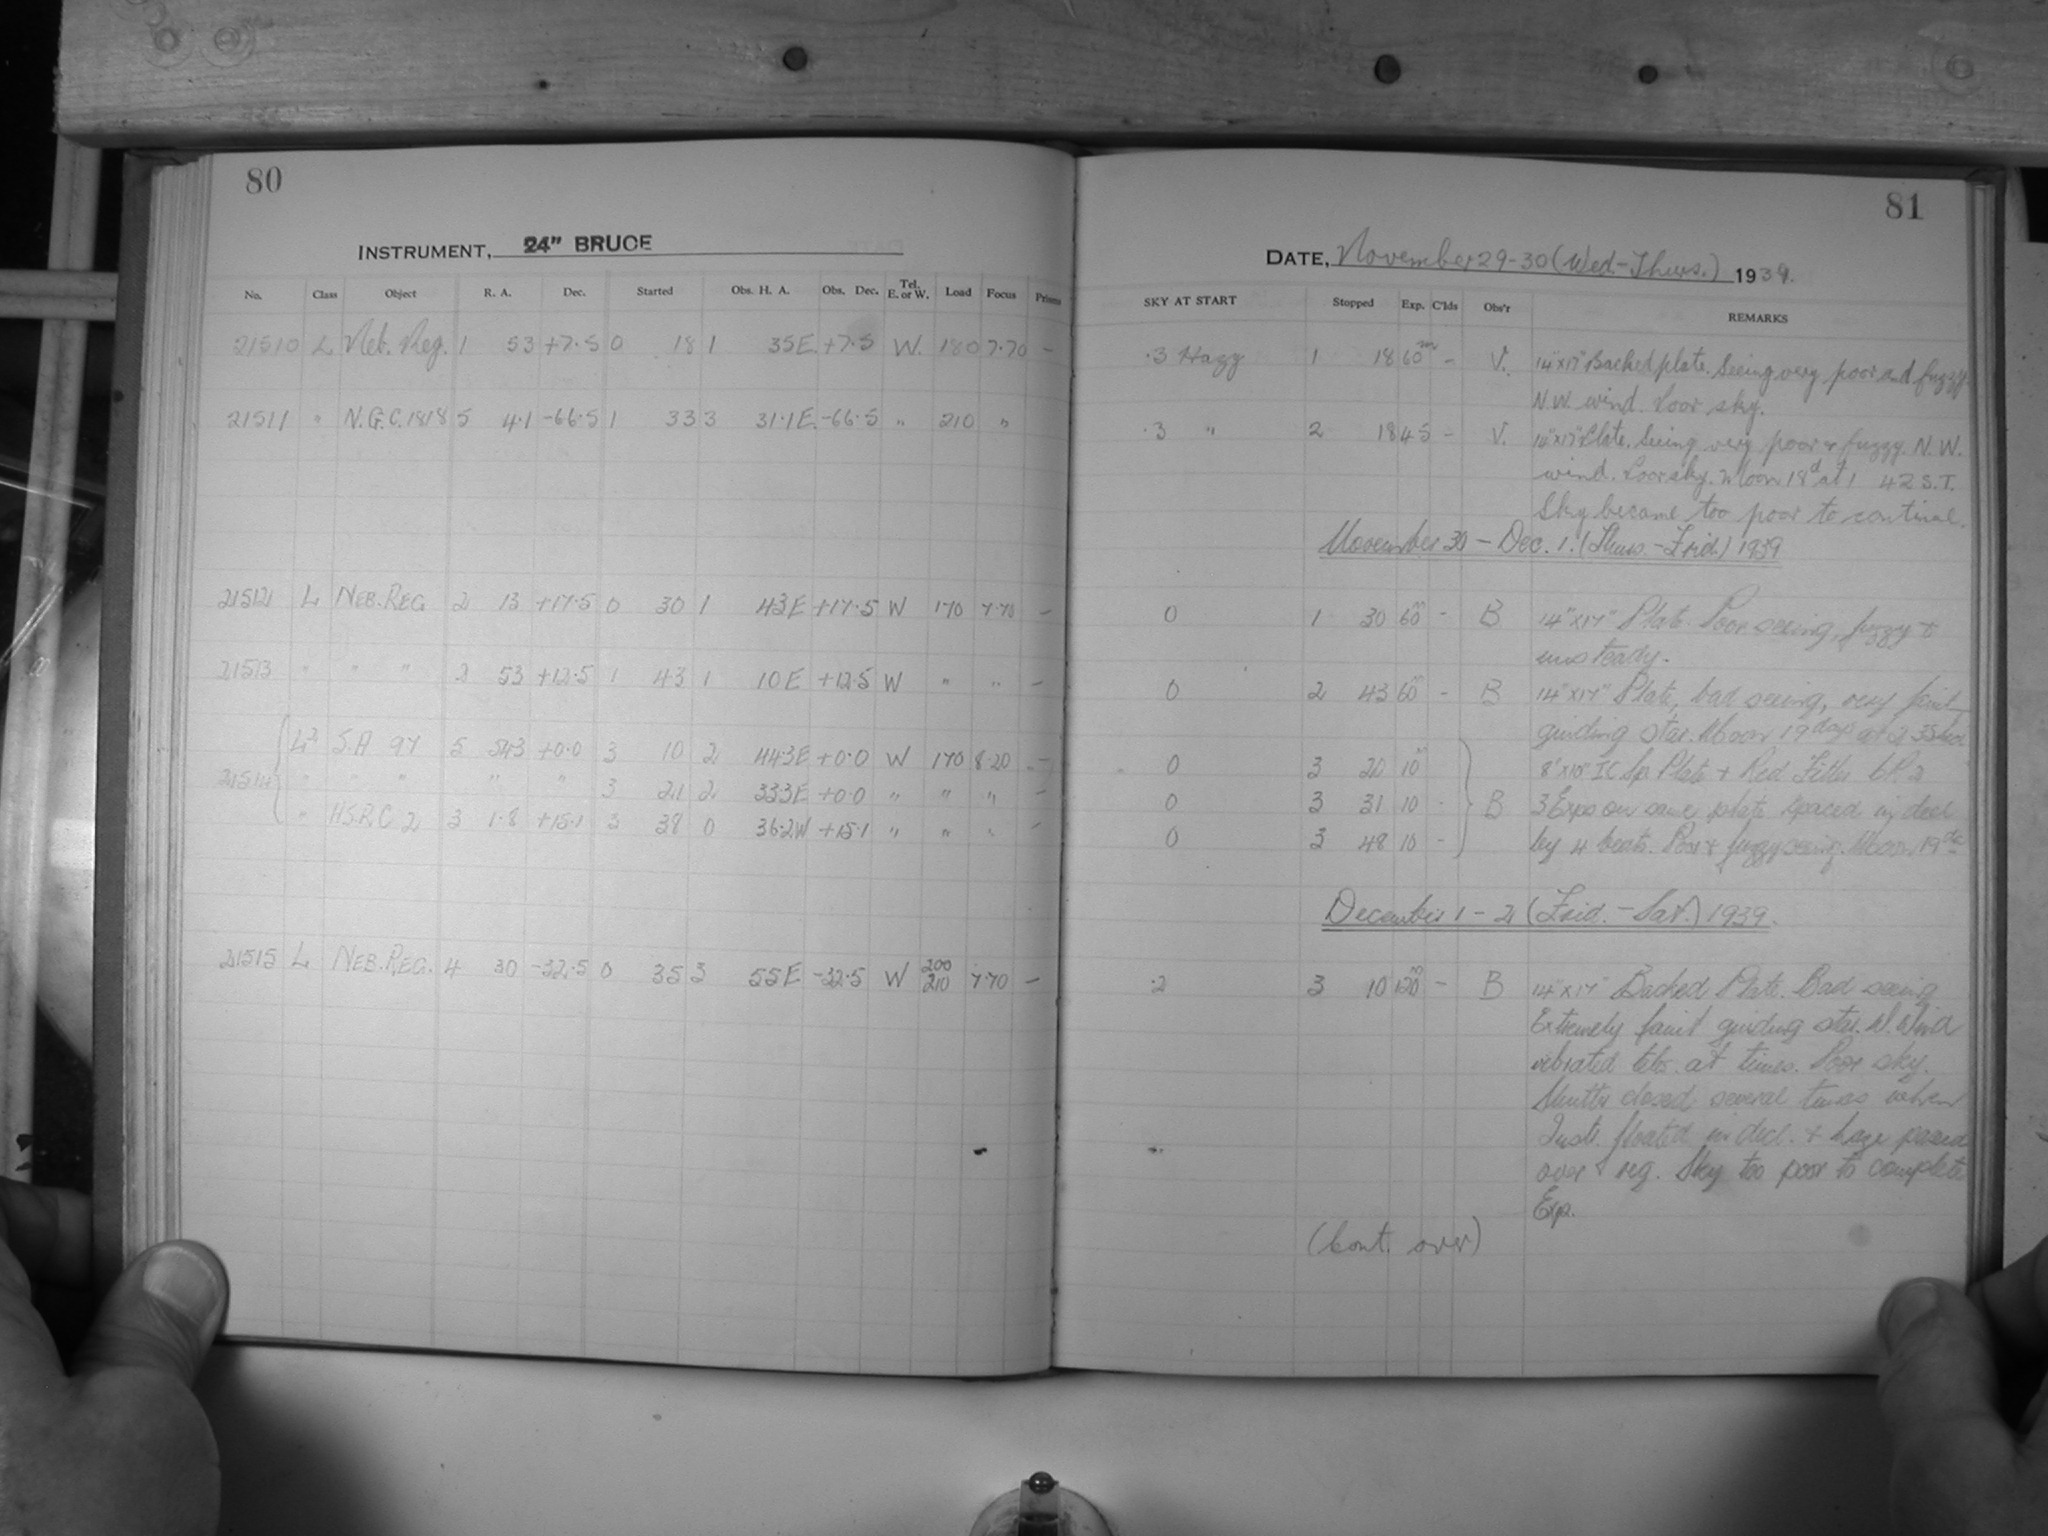 80
INSTRUMENT, 24" BRUCE
No. Class Object R. A. Dec. Started Obs. H. A. Obs. Dec. Tel. E. or W. Load Focus Prisms
21510 L Neb. Reg. 1 53 +7.5 0 18 1 35 E. +7.5 W. 180 7.70 -
21511 " N.G.C. 1818 5 4.1 -66.5 1 33 3 31.1 E. -66.5 " 210 "
21512 L NEB. REG 2 13 +17.5 0 30 1 43 E +17.5 W 170 7.70 -
21513 " " " 2 53 +12.5 1 43 1 10 E +12.5 W " " -
S.A 97 5 54.3 +0.0 3 10 2 44.3 E +0.0 W 170 8.20
21514 " " " " " 3 21 2 33.3 E +0.0 " " " -
" H.S.R.C 2 3 1.8 +15.1 3 38 0 36.2 W +15.1 " " " -
21515 L NEB. REG. 4 30 -32.5 0 35 3 55 E -32.5 W 200 210 7.70 -
81
DATE, November 29-30 (Wed.-Thurs.) 1939.
SKY AT START Stopped Exp. C'lds Obs'r REMARKS
.3 Hazy 1 18 60m - V. 14"x17" Backed plate. Seeing very poor and fuzzy.
N.W. wind. Poor sky.
.3 " 2 18 45 - V. 14"x17" Plate. Seeing very poor & fuzzy. N.W.
wind. Poor sky. Moon 18d at 1 42 S.T.
Sky became too poor to continue.
November 30 - Dec. 1. (Thurs.-Frid.) 1939
0 1 30 60m - B 14"x17" Plate. Poor seeing, fuzzy &
unsteady.
0 2 43 60m - B 14"x17" Plate, bad seeing, very faint
guiding star. Moon 19 days at
0 3 20 10m 8"x10" Plate + Red Filter
0 3 31 10 - B 3 Exps on same plate spaced in decl
0 3 48 10 - by 4 beats. Poor & fuzzy seeing. Moon 19
December 1-2 (Frid.-Sat.) 1939.
.2 3 10 120m - B 14"x17" Backed Plate. Bad seeing.
Extremely faint guiding star. Wind
vibrated tele. at times. Poor sky.
Shutter closed several times when
Inst. floated in decl. + haze passed
over reg. Sky too poor to complete
Exp.
(Cont. over)